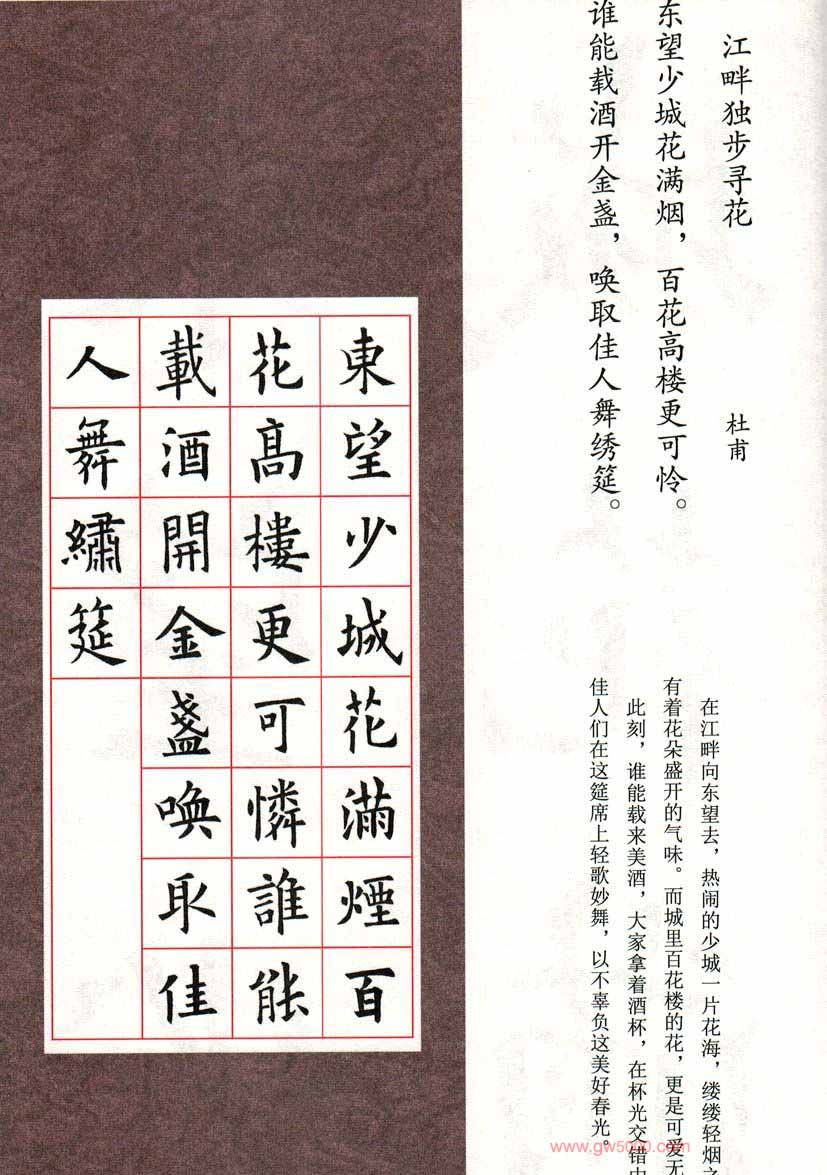 江畔独步寻花
杜甫
东望少城花满烟，百花高楼更可怜。
谁能载酒开金盏，唤取佳人舞绣筵。
在江畔向东望去，热闹的少城一片花海，缕缕轻烟
有着花朵盛开的气味。而城里百花楼的花，更是可爱无
此刻，谁能载来美酒，大家拿着酒杯，在杯光交错
佳人们在这筵席上轻歌妙舞，以不辜负这美好春光。
東望少城花滿煙百
花高樓更可憐誰能
載酒開金盞喚取佳
人舞繡筵
www.gw5000.com